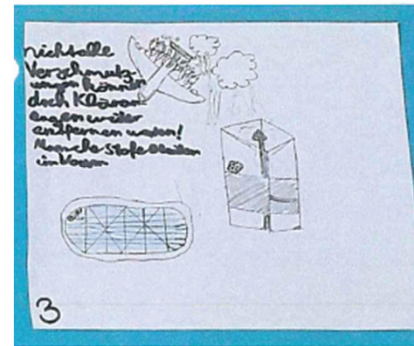 nicht alle
Verschmutz-
ungen können
dch Kläran
lagen weiter
entfernen waren!
Manche Stofe bleiben
im Wasser
3